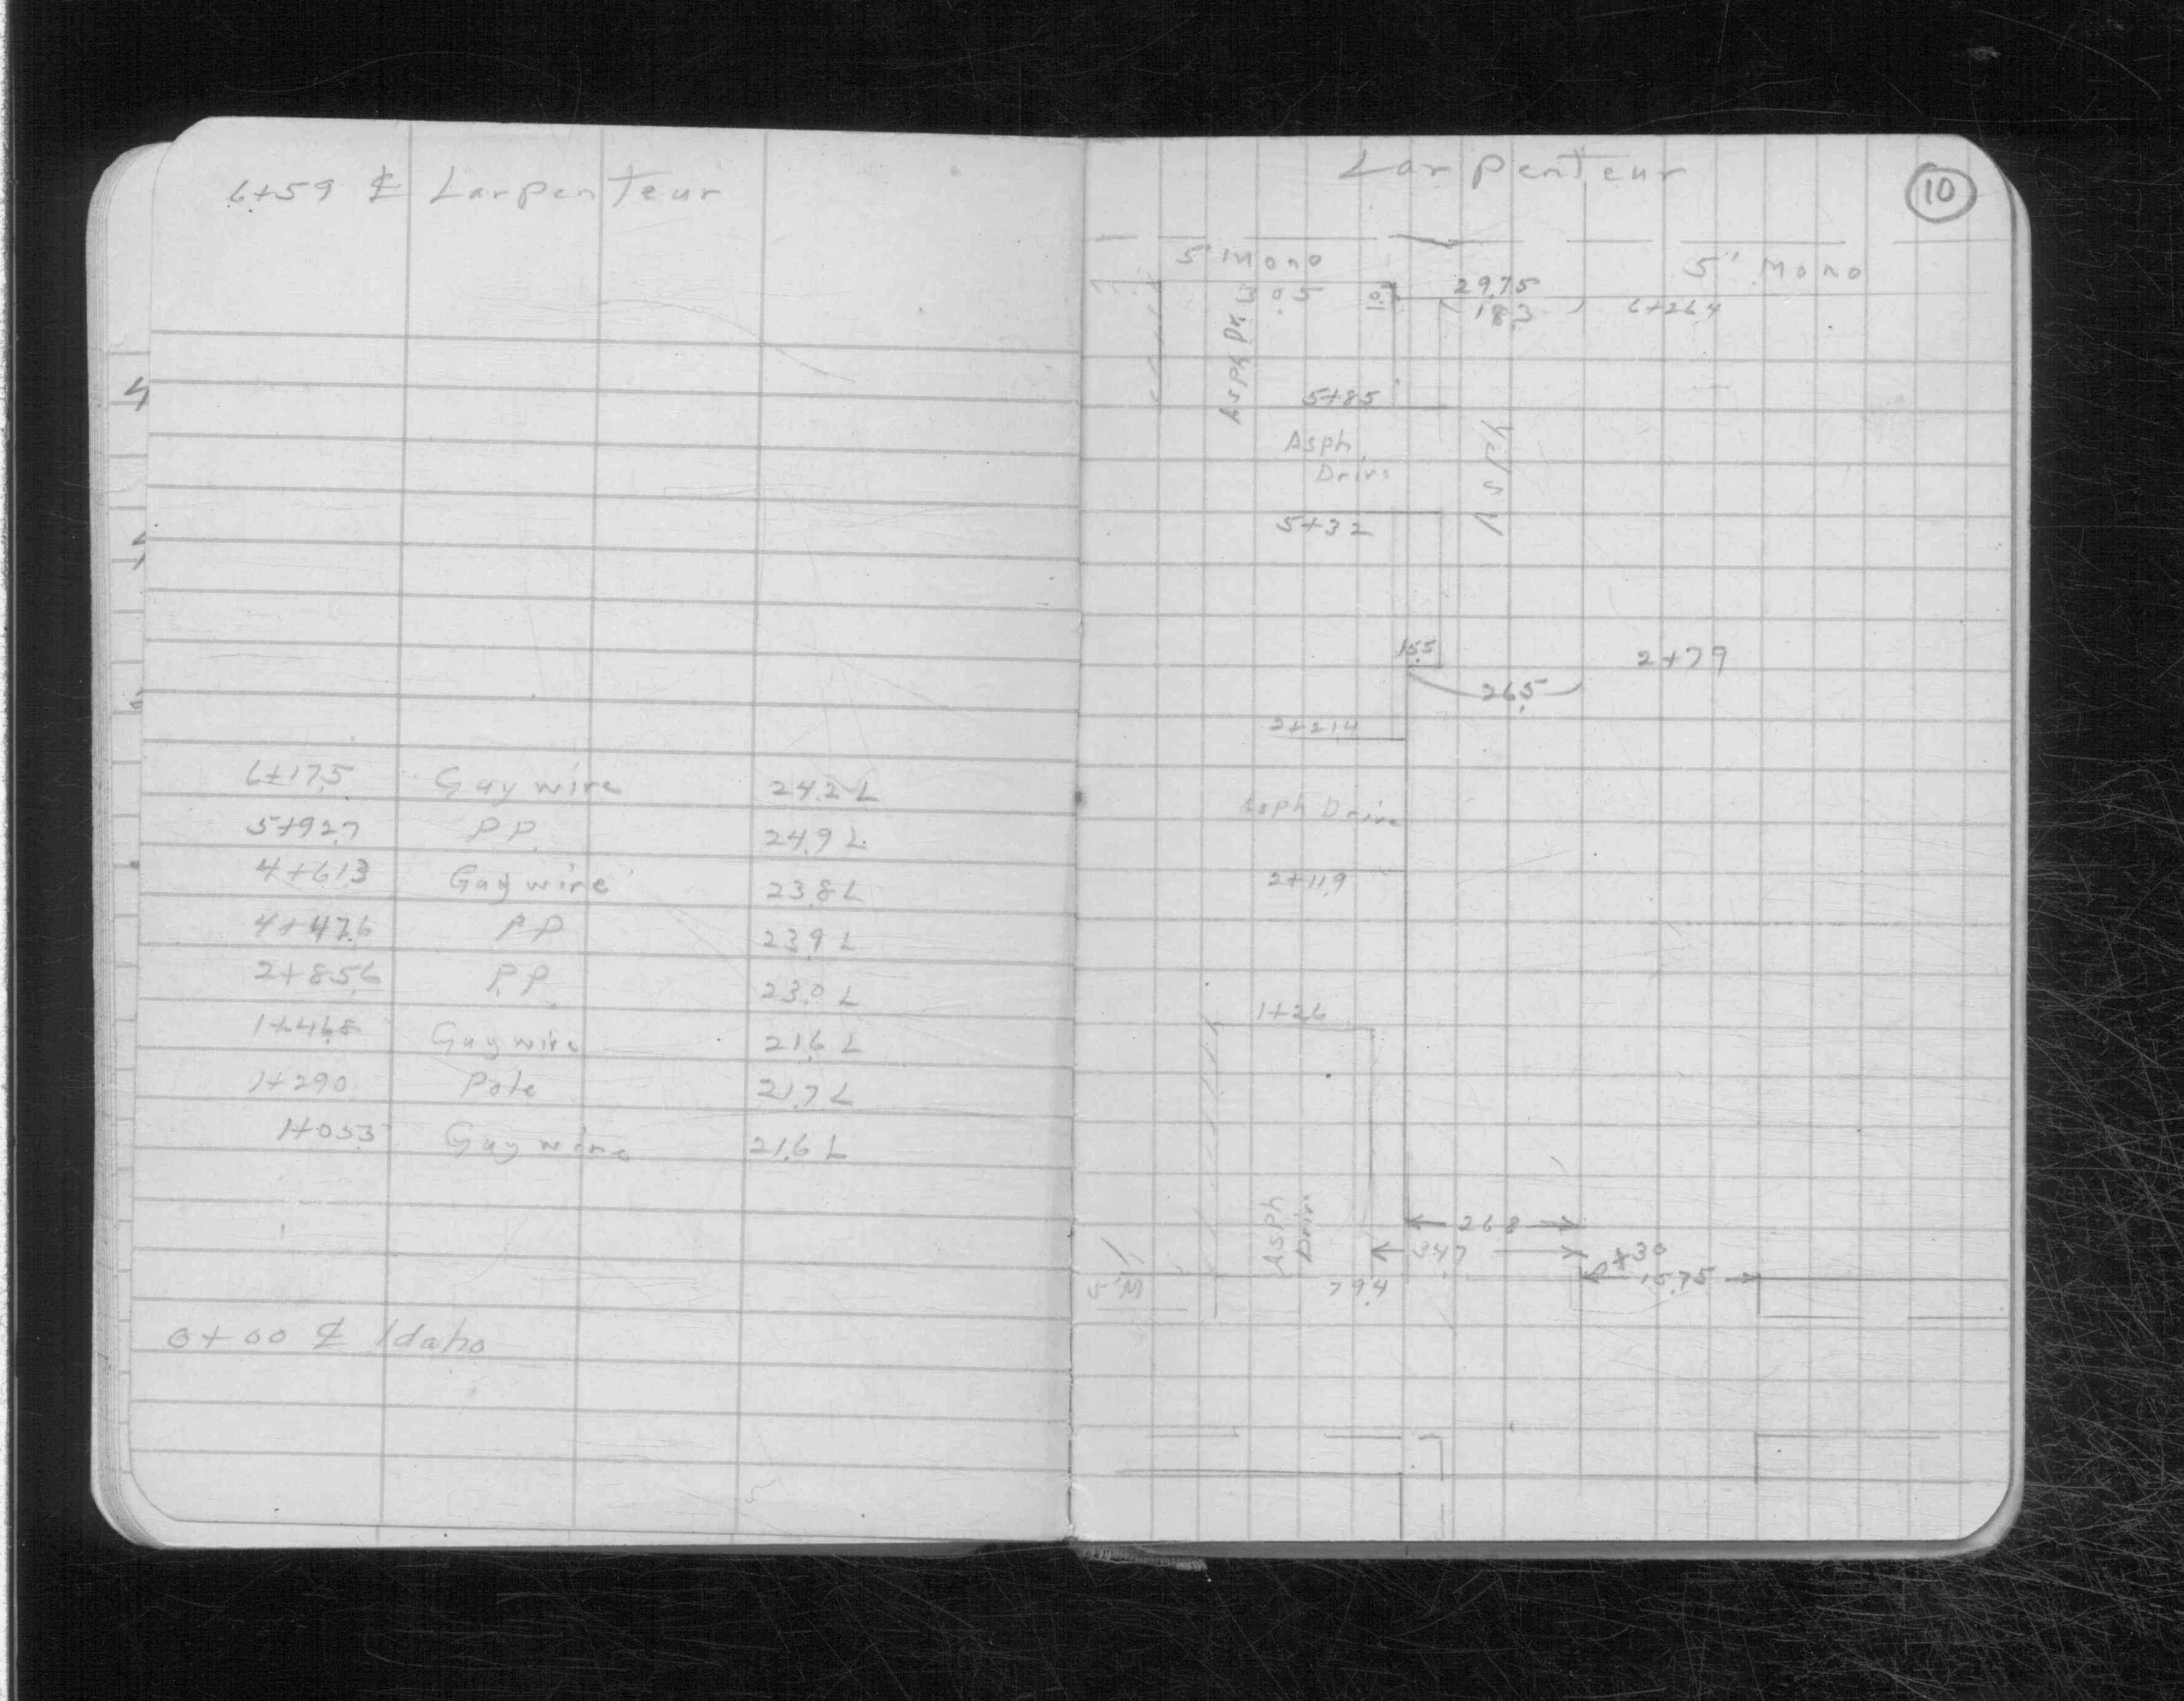 6+59 ℄ Larpenteur
6+17.5 Guy wire 24.2 L
5+92.7 P.P. 24.9 L
4+61.3 Guy wire 23.8 L
4+47.6 P.P. 23.9 L
2+85.6 P.P. 23.0 L
1+46.8 Guy wire 21.6 L
1+29.0 Pole 21.7 L
1+05.3 Guy wire 21.6 L
0+00 ℄ Idaho
Larpenteur
10
5' Mono
5' Mono
30.5
29.75
18.3
6+26.4
Asph Dr.
5+85
Asph
Drive
Asph
5+32
15.5
2+79
26.5
2+21.4
Asph Drive
2+11.9
1+26
Asph
Drive
26.8
34.7
+30
5' M
79.4
15.75